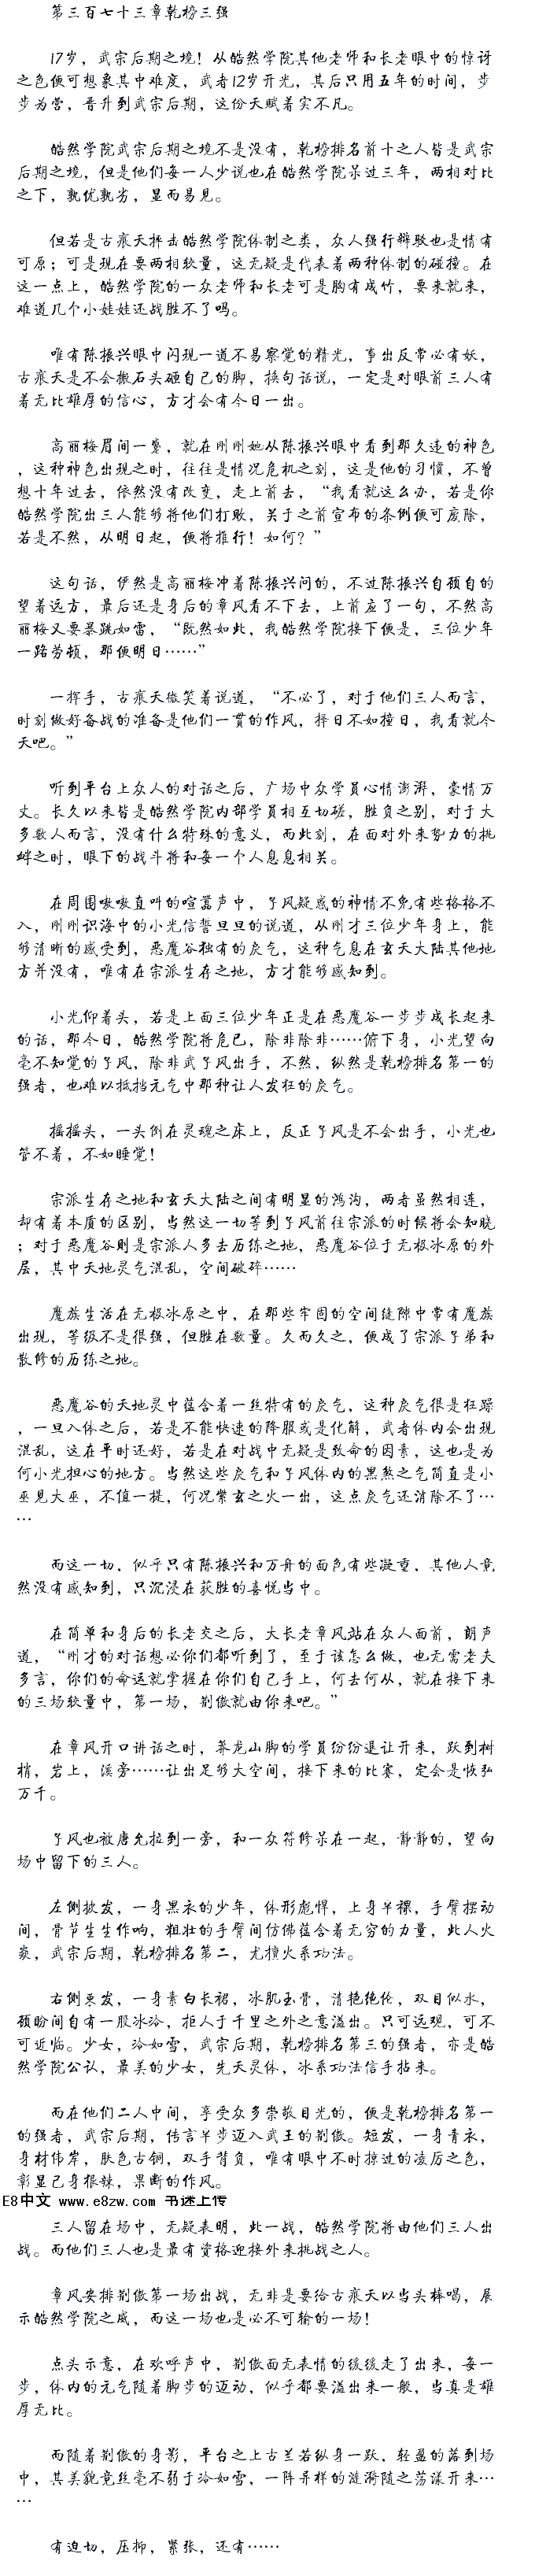 第三百七十三章乾榜三强
17岁，武宗后期之境！从皓然学院其他老师和长老眼中的惊讶
之色便可想象其中难度，武者12岁开光，其后只用五年的时间，步
步为营，晋升到武宗后期，这份天赋着实不凡。
皓然学院武宗后期之境不是没有，乾榜排名前十之人皆是武宗
后期之境，但是他们每一人少说也在皓然学院呆过三年，两相对比
之下，孰优孰劣，显而易见。
但若是古痕天抨击皓然学院体制之类，众人强行辩驳也是情有
可原；可是现在要两相较量，这无疑是代表着两种体制的碰撞。在
这一点上，皓然学院的一众老师和长老可是胸有成竹，要来就来，
难道几个小娃娃还战胜不了吗。
唯有陈振兴眼中闪现一道不易察觉的精光，事出反常必有妖，
古痕天是不会搬石头砸自己的脚，换句话说，一定是对眼前三人有
着无比雄厚的信心，方才会有今日一出。
高丽梅眉间一蹙，就在刚刚她从陈振兴眼中看到那久违的神色
，这种神色出现之时，往往是情况危机之刻，这是他的习惯，不曾
想十年过去，依然没有改变，走上前去，“我看就这么办，若是你
皓然学院出三人能够将他们打败，关于之前宣布的条例便可废除，
若是不然，从明日起，便将推行！如何？”
这句话，俨然是高丽梅冲着陈振兴问的，不过陈振兴自顾自的
望着远方，最后还是身后的章风看不下去，上前应了一句，不然高
丽梅又要暴跳如雷，“既然如此，我皓然学院接下便是，三位少年
一路劳顿，那便明日……”
一挥手，古痕天微笑着说道，“不必了，对于他们三人而言，
时刻做好备战的准备是他们一贯的作风，择日不如撞日，我看就今
天吧。”
听到平台上众人的对话之后，广场中众学员心情澎湃，豪情万
丈。长久以来皆是皓然学院内部学员相互切磋，胜负之别，对于大
多数人而言，没有什么特殊的意义，而此刻，在面对外来势力的挑
衅之时，眼下的战斗将和每一个人息息相关。
在周围嗷嗷直叫的喧嚣声中，孑风疑惑的神情不免有些格格不
入，刚刚识海中的小光信誓旦旦的说道，从刚才三位少年身上，能
够清晰的感受到，恶魔谷独有的戾气，这种气息在玄天大陆其他地
方并没有，唯有在宗派生存之地，方才能够感知到。
小光仰着头，若是上面三位少年正是在恶魔谷一步步成长起来
的话，那今日，皓然学院将危已，除非除非……俯下身，小光望向
毫不知觉的孑风，除非武孑风出手，不然，纵然是乾榜排名第一的
强者，也难以抵挡元气中那种让人发狂的戾气。
摇摇头，一头倒在灵魂之床上，反正孑风是不会出手，小光也
管不着，不如睡觉！
宗派生存之地和玄天大陆之间有明显的鸿沟，两者虽然相连，
却有着本质的区别，当然这一切等到孑风前往宗派的时候将会知晓
；对于恶魔谷则是宗派人多去历练之地，恶魔谷位于无极冰原的外
层，其中天地灵气混乱，空间破碎……
魔族生活在无极冰原之中，在那些牢固的空间缝隙中常有魔族
出现，等级不是很强，但胜在数量。久而久之，便成了宗派子弟和
散修的历练之地。
恶魔谷的天地灵中蕴含着一丝特有的戾气，这种戾气很是狂躁
，一旦入体之后，若是不能快速的降服或是化解，武者体内会出现
混乱，这在平时还好，若是在对战中无疑是致命的因素，这也是为
何小光担心的地方。当然这些戾气和孑风体内的黑煞之气简直是小
巫见大巫，不值一提，何况紫玄之火一出，这点戾气还消除不了…
…
而这一切，似乎只有陈振兴和万舟的面色有些凝重，其他人竟
然没有感知到，只沉浸在获胜的喜悦当中。
在简单和身后的长老交之后，大长老章风站在众人面前，朗声
道，“刚才的对话想必你们都听到了，至于该怎么做，也无需老夫
多言，你们的命运就掌握在你们自己手上，何去何从，就在接下来
的三场较量中，第一场，荆傲就由你来吧。”
在章风开口讲话之时，养龙山脚的学员纷纷退让开来，跃到树
梢，岩上，溪旁……让出足够大空间，接下来的比赛，定会是恢弘
万千。
孑风也被唐允拉到一旁，和一众符修呆在一起，静静的，望向
场中留下的三人。
左侧披发，一身黑衣的少年，体形彪悍，上身半裸，手臂摆动
间，骨节生生作响，粗壮的手臂间仿佛蕴含着无穷的力量，此人火
焱，武宗后期，乾榜排名第二，尤擅火系功法。
右侧束发，一身素白长裙，冰肌玉骨，清艳绝伦，双目似水，
顾盼间自有一股冰冷，拒人于千里之外之意溢出。只可远观，可不
可近临。少女，冷如雪，武宗后期，乾榜排名第三的强者，亦是皓
然学院公认，最美的少女，先天灵体，冰系功法信手拈来。
而在他们二人中间，享受众多崇敬目光的，便是乾榜排名第一
的强者，武宗后期，传言半步迈入武王的荆傲。短发，一身青衣，
身材伟岸，肤色古铜，双手背负，唯有眼中不时掠过的凌厉之色，
彰显己身狠辣，果断的作风。
E8中文 www.e8zw.com 书迷上传
三人留在场中，无疑表明，此一战，皓然学院将由他们三人出
战。而他们三人也是最有资格迎接外来挑战之人。
章风安排荆傲第一场出战，无非是要给古痕天以当头棒喝，展
示皓然学院之威，而这一场也是必不可输的一场！
点头示意，在欢呼声中，荆傲面无表情的缓缓走了出来，每一
步，体内的元气随着脚步的迈动，似乎都要溢出来一般，当真是雄
厚无比。
而随着荆傲的身影，平台之上古兰若纵身一跃，轻盈的落到场
中，其美貌竟丝毫不弱于冷如雪，一阵异样的涟漪随之荡漾开来…
…
有迫切，压抑，紧张，还有……